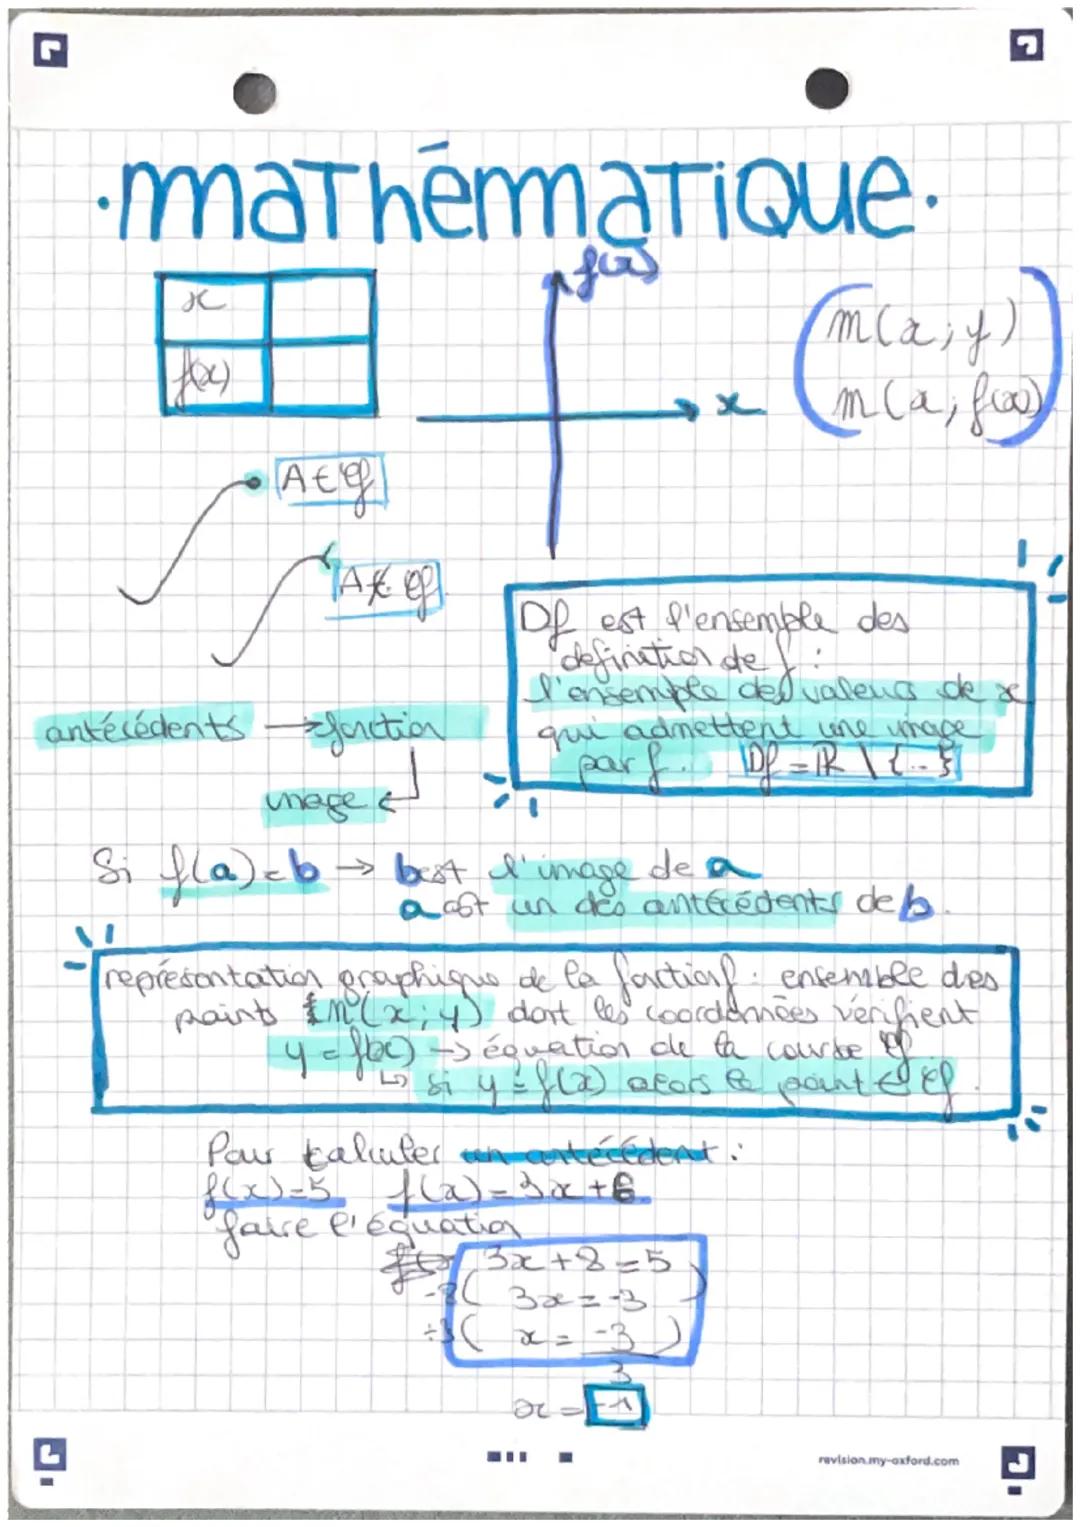 ·mathématique·
x
f(x)
f(x)
x
m(x; y)
m(x; f(x))
A ∈ Cf
A ∉ Cf
Df est l'ensemble des
definition de f :
l'ensemble des valeurs de x
qui admettent une image
par f. Df = ℝ \ {...}
antécédents → fonction
image
Si f(a) = b → b est l'image de a
a est un des antécédents de b.
représentation graphique de la fonction f : ensemble des
points m(x; y) dont les coordonnées vérifient
y = f(x) → équation de la courbe Cf
↳ si y = f(x) alors le point ∈ Cf.
Pour calculer un antécédent :
f(x)=5 f(x)=3x+8
faire l'équation
3x+8=5
-8( 3x=-3 )
÷3( x = -3 )
3
x = -1
revision.my-oxford.com